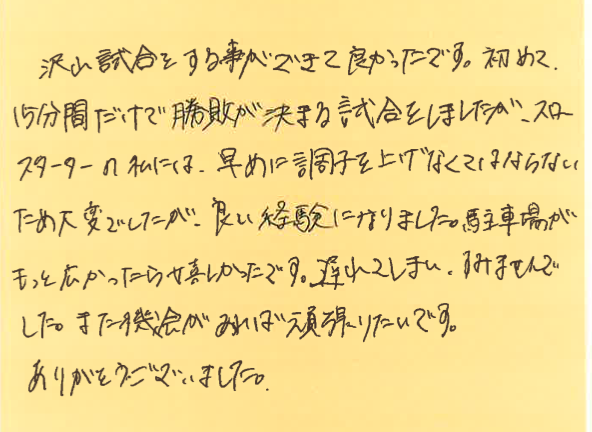 沢山試合をする事ができて良かったです。初めて、
15分間だけで勝敗が決まる試合をしましたが、スロー
スターターの私には、早めに調子を上げなくてはならない
ため大変でしたが、良い経験になりました。駐車場が
もっと広かったら嬉しかったです。遅れてしまい、すみませんで
した。また機会があれば頑張りたいです。
ありがとうございました。